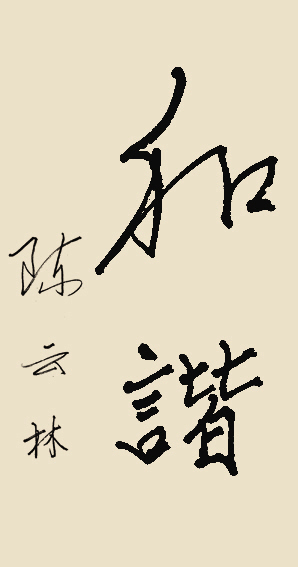 和諧
陈云林